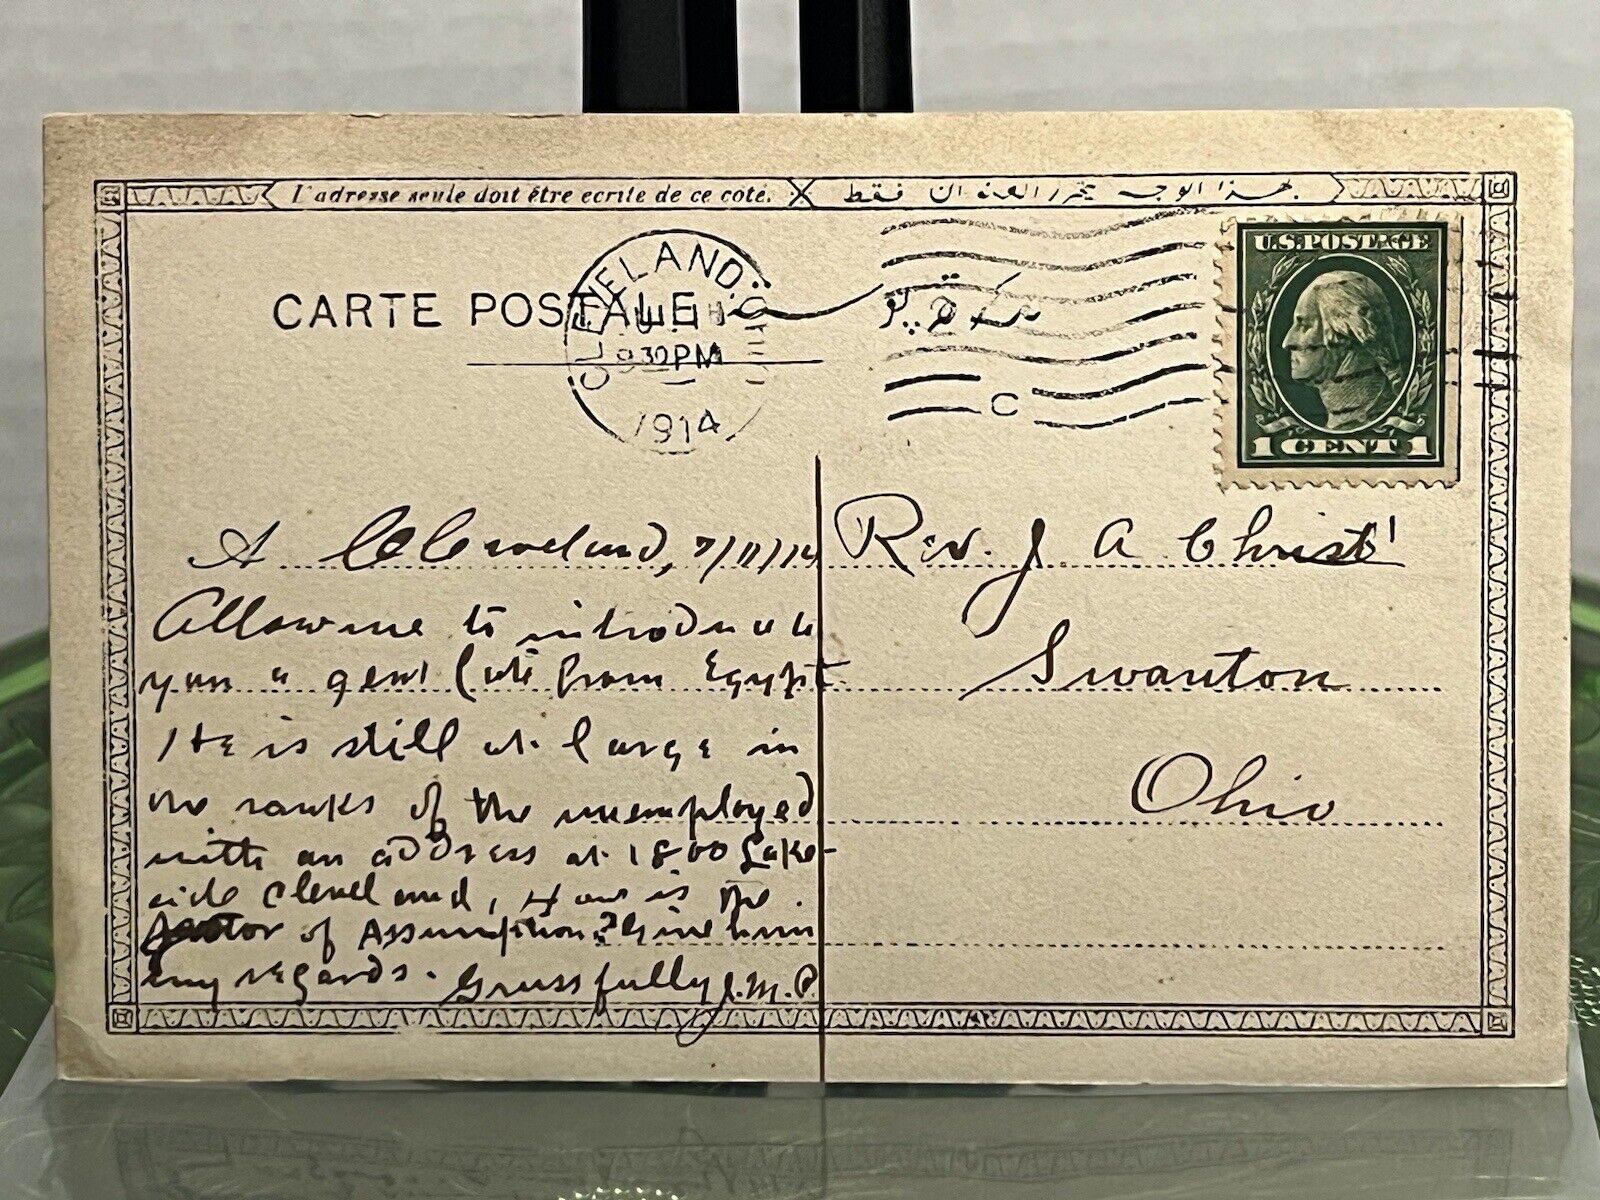 L'adresse seule doit être ecrite de ce coté. بهذا الوجه يحرر العنوان فقط
CARTE POSTALE
CLEVELAND, O
JUL 11
9 30 PM
1914
C
U.S. POSTAGE
1 CENT 1
A Cleveland, 7/11/14
Allow me to introduce to
you a gent late from Egypt
He is still at large in
the ranks of the unemployed
with an address at 1800 Lake-
side Cleveland, How is the
pastor of Assumption? Give him
my regards. Grussfully J.M.P.
Rev. J. A. Christ
Swanton
Ohio